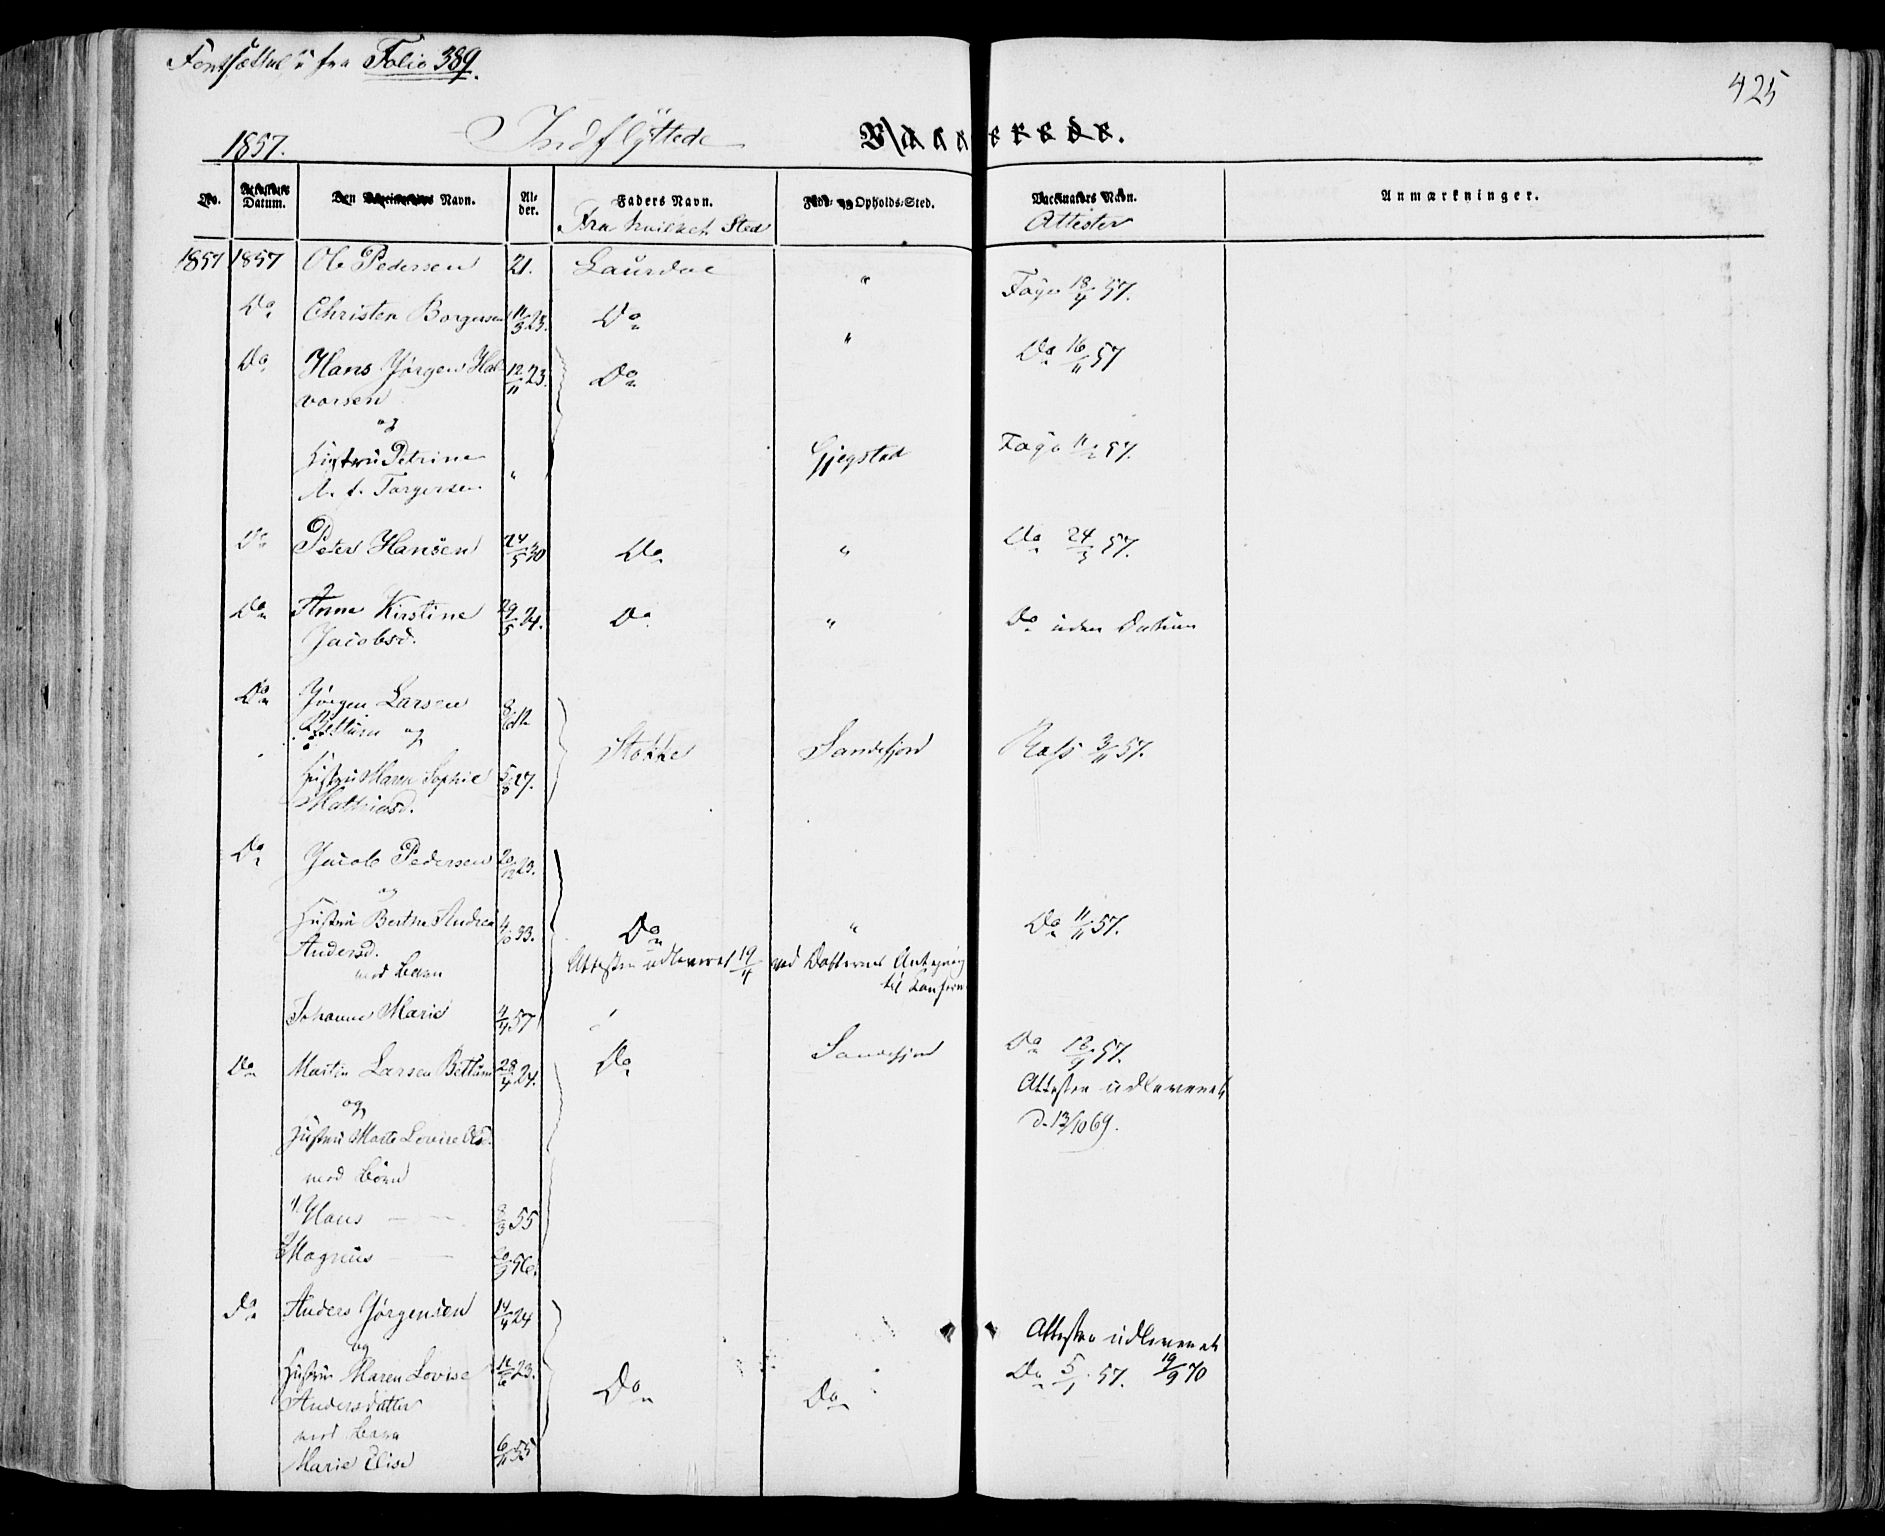 Fortsættelse fra Folio 389.
425
1857.
Indflÿttede
No.
Datum.
Den Navn.
Al-
der.
Faders Navn.
Fra hvilket Sted
Opholds-Sted.
Navn.
Attester
Anmærkninger.
1857 1857 Ole Pedersen 21. Laurdal "
Do Christen Borgersen 11/3 23. Do "
18/4 57.
Do Hans Jørgen Hal- 12/11 23. Do
vorsen
Do 16/11 57
og
Hustru Petrine Gjegstad 11/2 57.
N. f. Torgersen "
Do Peter Hansen 24/5 30 Do " Do 24/3 57.
Do Anne Kirstine 29/5 24. Do " Do uden Datum
Jacobsd.
Do Jørgen Larsen
Bettum og
Stokke Sandefjord 3/11 57.
Hustru Maren Sophie 5/8 27.
Mathiasd.
Do Jacob Pedersen 20/12 23.
og
Hustru Berthe Andrea 4/10 33. Do " Do 11/11 57.
Andersd.
med Barn
Attesten udleveret 19/4 ved Datterens Antegning
til Konfirm
Johanne Marie 4/4 57
Do Martin Larsen Bettum 28/4 24. Do Sandefjord Do 18/9 57.
Attesten udleveret
d. 13/10 69.
og
Hustru Marte Lovise
med Børn
1, Hans 8/3 55
2, Magnus 20/9 56.
Do Anders Jørgensen 14/4 24
Attesten udleveret
og
Hustru Maren Lovise 12/6 23. Do Do Do 5/1 57. 19/9 70
Andersdatter
med Barn
Marie Elise 6/11 55